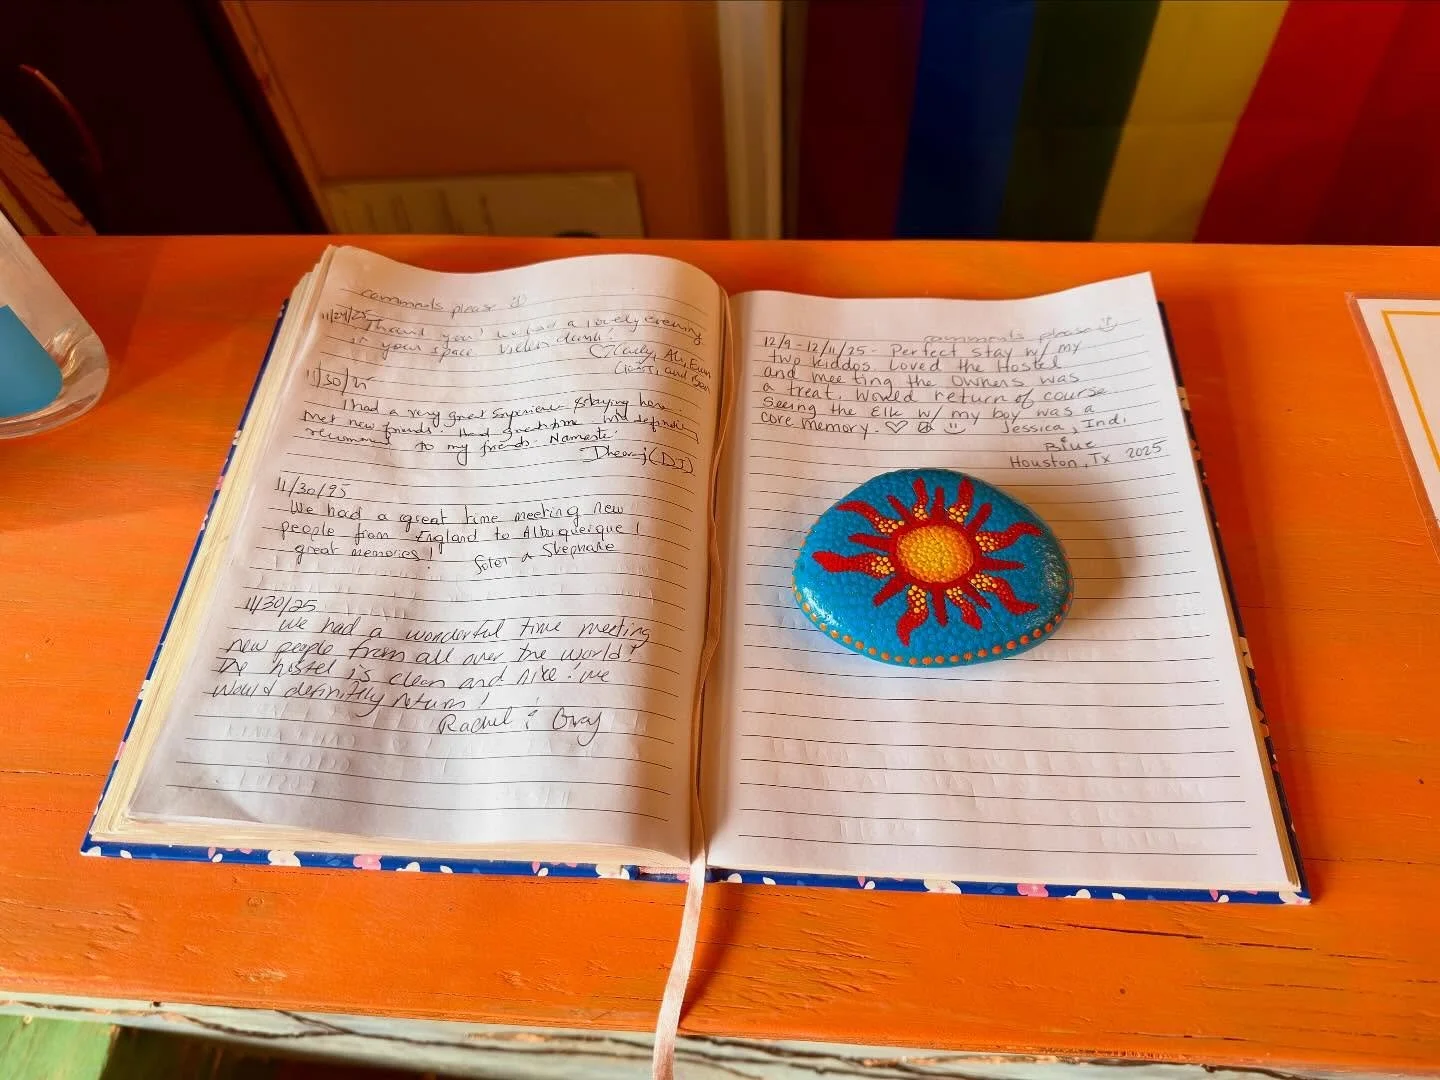 comments please
11/29/25 Thank you! We had a lovely evening
in your space
Ali, Evan
and Ben
11/30/25
I had a very great experience staying here.
Met new friends. Had great time. Will definitely
recommend to my friends. Namaste
Dheeraj (DJ)
11/30/25
We had a great time meeting new
people from England to Albuquerque!
great memories! Stephanie
11/30/25
We had a wonderful time meeting
new people from all over the world!
The hostel is clean and nice! We
would definitly return!
Rachel & Gray
comments please
12/9 - 12/11/25 - Perfect stay w/ my
two kiddos. Loved the Hostel
and meeting the owners was
a treat. Would return of course
Seeing the Elk w/ my boy was a
core memory. ♡ ☮ ☺ Jessica, Indi,
Blue
Houston, Tx 2025